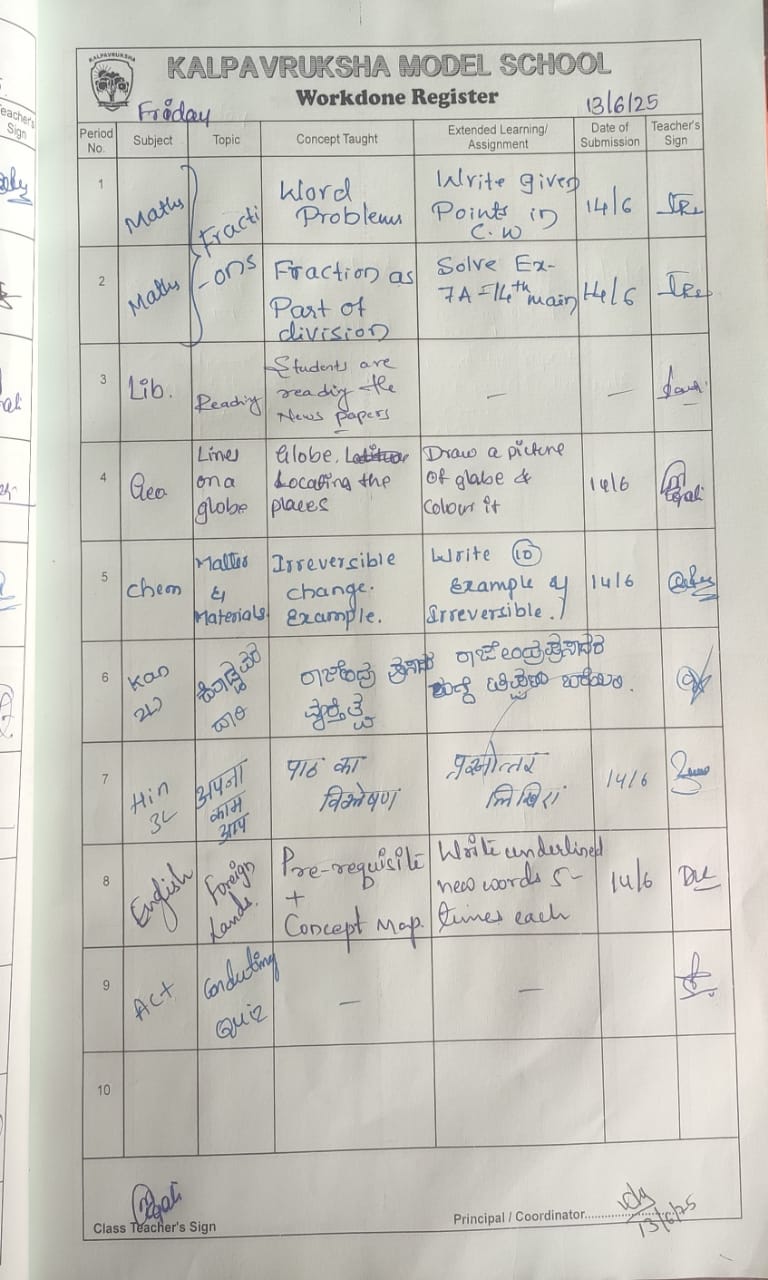 KALPAVRUKSHA
KALPAVRUKSHA MODEL SCHOOL
Workdone Register
Friday
13/6/25
Period No. Subject Topic Concept Taught Extended Learning/ Assignment Date of Submission Teacher's Sign
1 Maths Fracti Word Problems Write given Points in C.W 14/6
2 Maths -ons Fraction as Part of division Solve Ex- 7A = 14th main 14/6
3 Lib. Reading Students are reading the News papers — —
4 Geo Lines on a globe Globe, Locating the places Draw a picture of glabe & Colour it 14/6
5 Chem Matter & Materials. Irreversible change. Example. Write 10 Example of Irreversible. 14/6
6 Kan 2L
7 Hin 3L अपना काम आप पाठ का विश्लेषण प्रश्नोत्तर लिखिए 14/6
8 English Foreign Lands. Pre-requisite + Concept Map. Write underlined new words 5- times each 14/6
9 Act Conducting Quiz — —
10
Class Teacher's Sign
Principal / Coordinator
13/6/25
Teacher's Sign